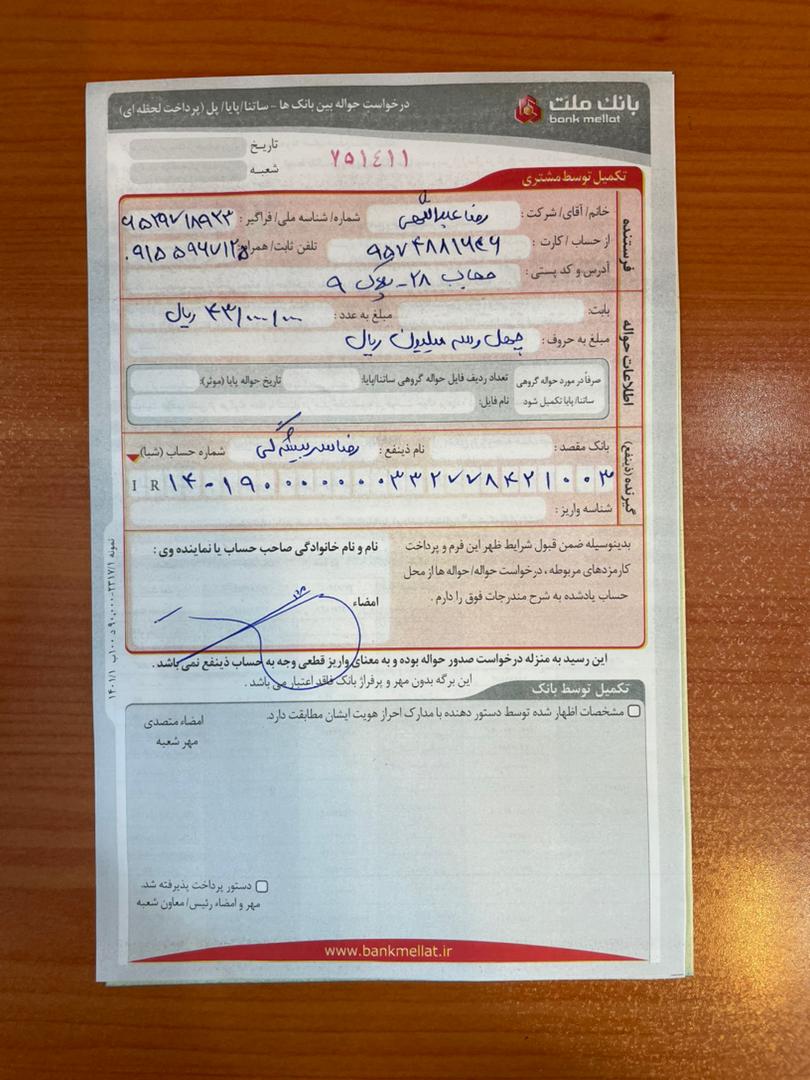 بانک ملت
bank mellat
درخواست حواله بین بانک ها - ساتنا/پایا/پل (پرداخت لحظه ای)
تاریخ
شعبه
۷۵۱٤۱۱
تکمیل توسط مشتری
فرستنده
خانم/آقای/شرکت: رضا عبداللهی شماره/شناسه ملی/فراگیر: ۶۵۲۹۷۱۸۹۲۳
از حساب/کارت: تلفن ثابت/همراه: ۰۹۱۵۵۹۶۷۱۲۵
آدرس و کد پستی: ۲۸ - پلاک ۹
اطلاعات حواله
بابت: مبلغ به عدد: ۴۳/۰۰۰/۰۰۰ ریال
مبلغ به حروف: چهل و سه میلیون ریال
صرفاً در مورد حواله گروهی ساتنا/پایا تکمیل شود
تعداد ردیف فایل حواله گروهی ساتنا/پایا: تاریخ حواله پایا (موثر):
نام فایل:
گیرنده (ذینفع)
بانک مقصد: نام ذینفع: رضا شماره حساب (شبا)
IR ۱۴۰۱۹۰۰۰۰۰۰۰۰۳۳۲۷۷۸۴۲۱۰۰۳
شناسه واریز:
بدینوسیله ضمن قبول شرایط ظهر این فرم و پرداخت
کارمزدهای مربوطه، درخواست حواله/حواله ها از محل
حساب یادشده به شرح مندرجات فوق را دارم.
نام و نام خانوادگی صاحب حساب یا نماینده وی:
امضاء
این رسید به منزله درخواست صدور حواله بوده و به معنای واریز قطعی وجه به حساب ذینفع نمی باشد.
این برگه بدون مهر و پرفراژ بانک فاقد اعتبار می باشد.
تکمیل توسط بانک
مشخصات اظهار شده توسط دستور دهنده با مدارک احراز هویت ایشان مطابقت دارد.
امضاء متصدی
مهر شعبه
دستور پرداخت پذیرفته شد.
مهر و امضاء رئیس/معاون شعبه
www.bankmellat.ir